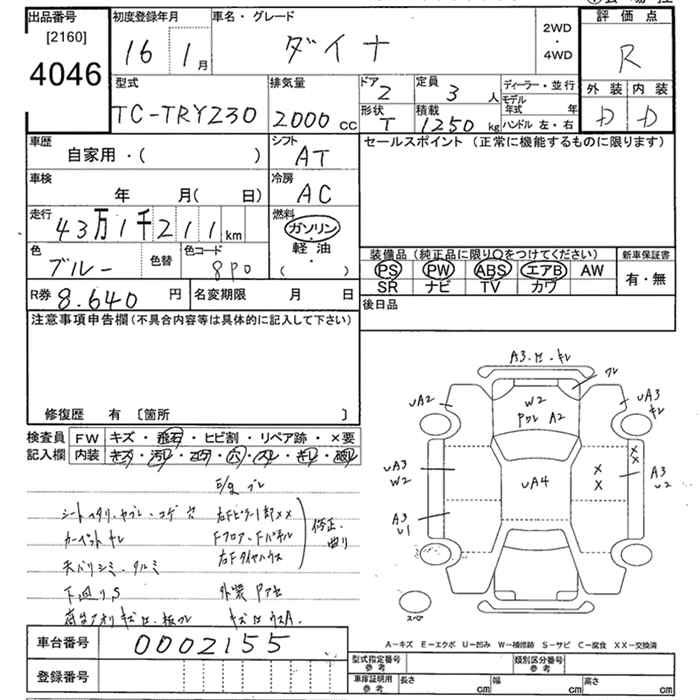 出品番号
[2160]
4046
初度登録年月
16 1月
車名・グレード
ダイナ
2WD
・
4WD
評価点
R
外装 内装
D D
型式
TC-TRY230
排気量
2000 cc
ドア
2
定員
3 人
形状
T
積載
1250 kg
ディーラー・並行
モデル年式 年
ハンドル 左・右
車歴
自家用・( )
シフト
AT
車検
年 月( 日)
冷房
AC
走行
43万1千211 km
燃料
ガソリン
・
軽油
( )
色
ブルー
色替
色コード
8P0
R券 8.640 円
名変期限 月 日
セールスポイント (正常に機能するものに限ります)
装備品 (純正品に限り○をつけてください)
新車保証書
PS PW ABS エアB AW
SR ナビ TV カワ
有・無
後日品
注意事項申告欄(不具合内容等は具体的に記入して下さい)
修復歴 有 [箇所 ]
検査員
記入欄
FW キズ・飛石・ヒビ割・リペア跡・×要
内装 キズ・汚レ・コゲ・穴・スレ・キレ・破レ
E/g ブレ
シートヘタリ・ヤブレ・コゲ 穴
右Fピラー1部××
カーペットキレ
Fフロア・Fパネル
右Fタイヤハウス
修正・曲り
天バリシミ・タルミ
下廻りS
外装 Pアセ
車台番号 0002155
登録番号
A3.
ワレ
UA2
W2
Pワレ A2
UA3
キレ
UA3
W2
UA4
×
×
×
×
A3
U2
A3
U1
スペア
A-キズ E-エクボ U-凹み W-補修跡 S-サビ C-腐食 XX-交換済
型式指定番号
参考
類別区分番号
参考
車庫証明用
参考
長さ cm
幅 cm
高さ cm